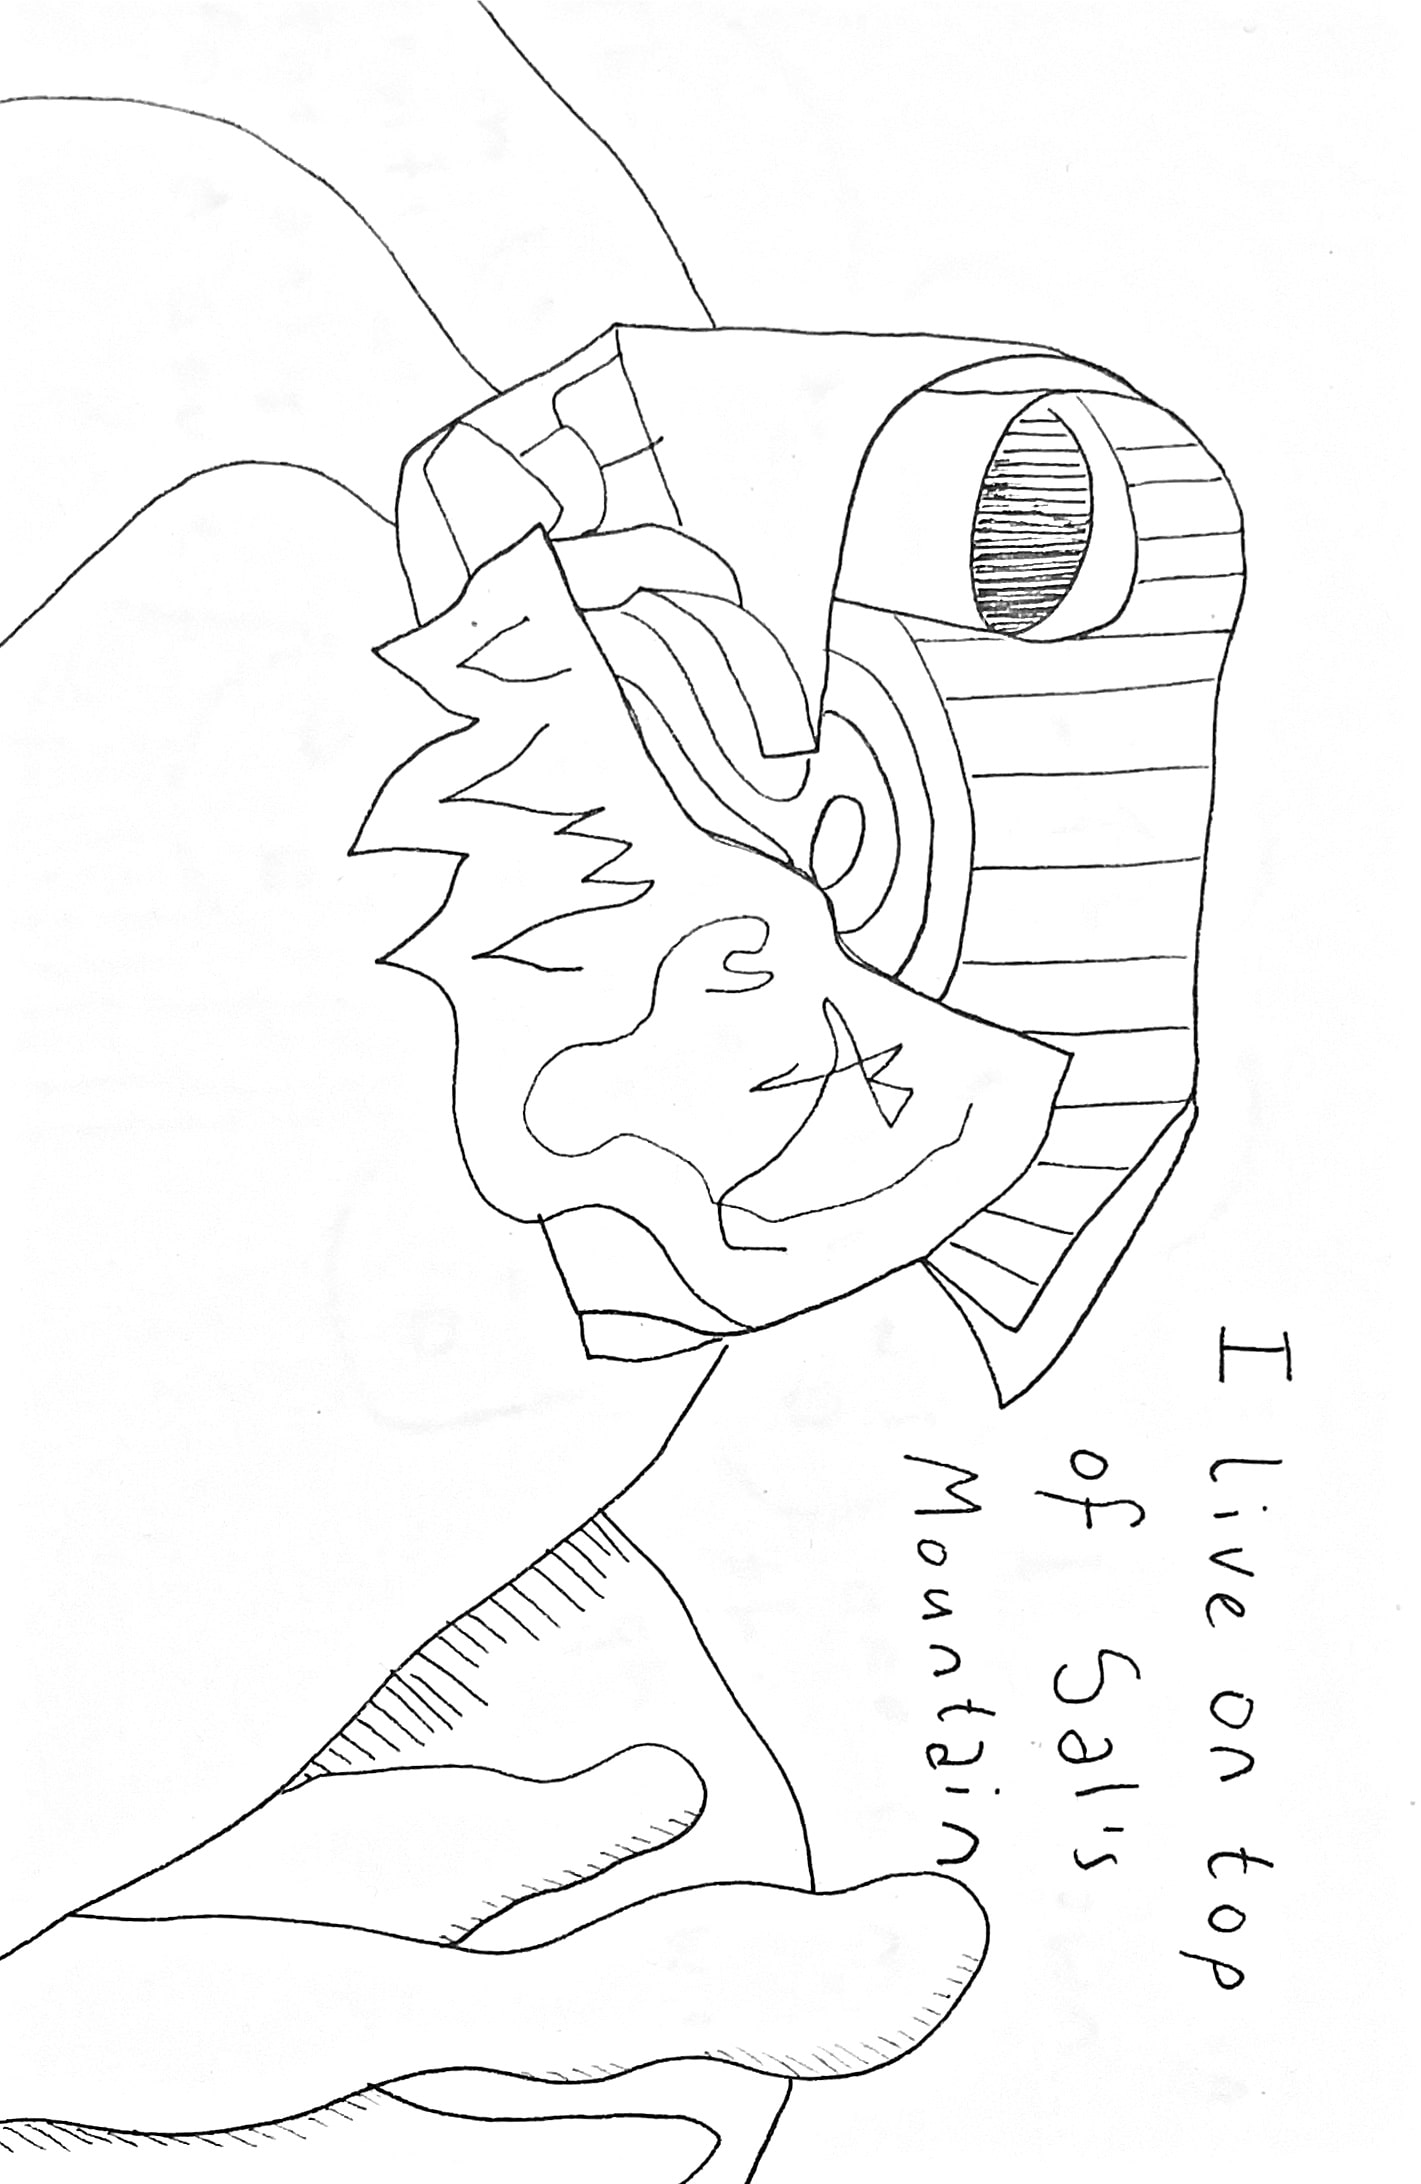 I live on top
of Sal's
Mountain